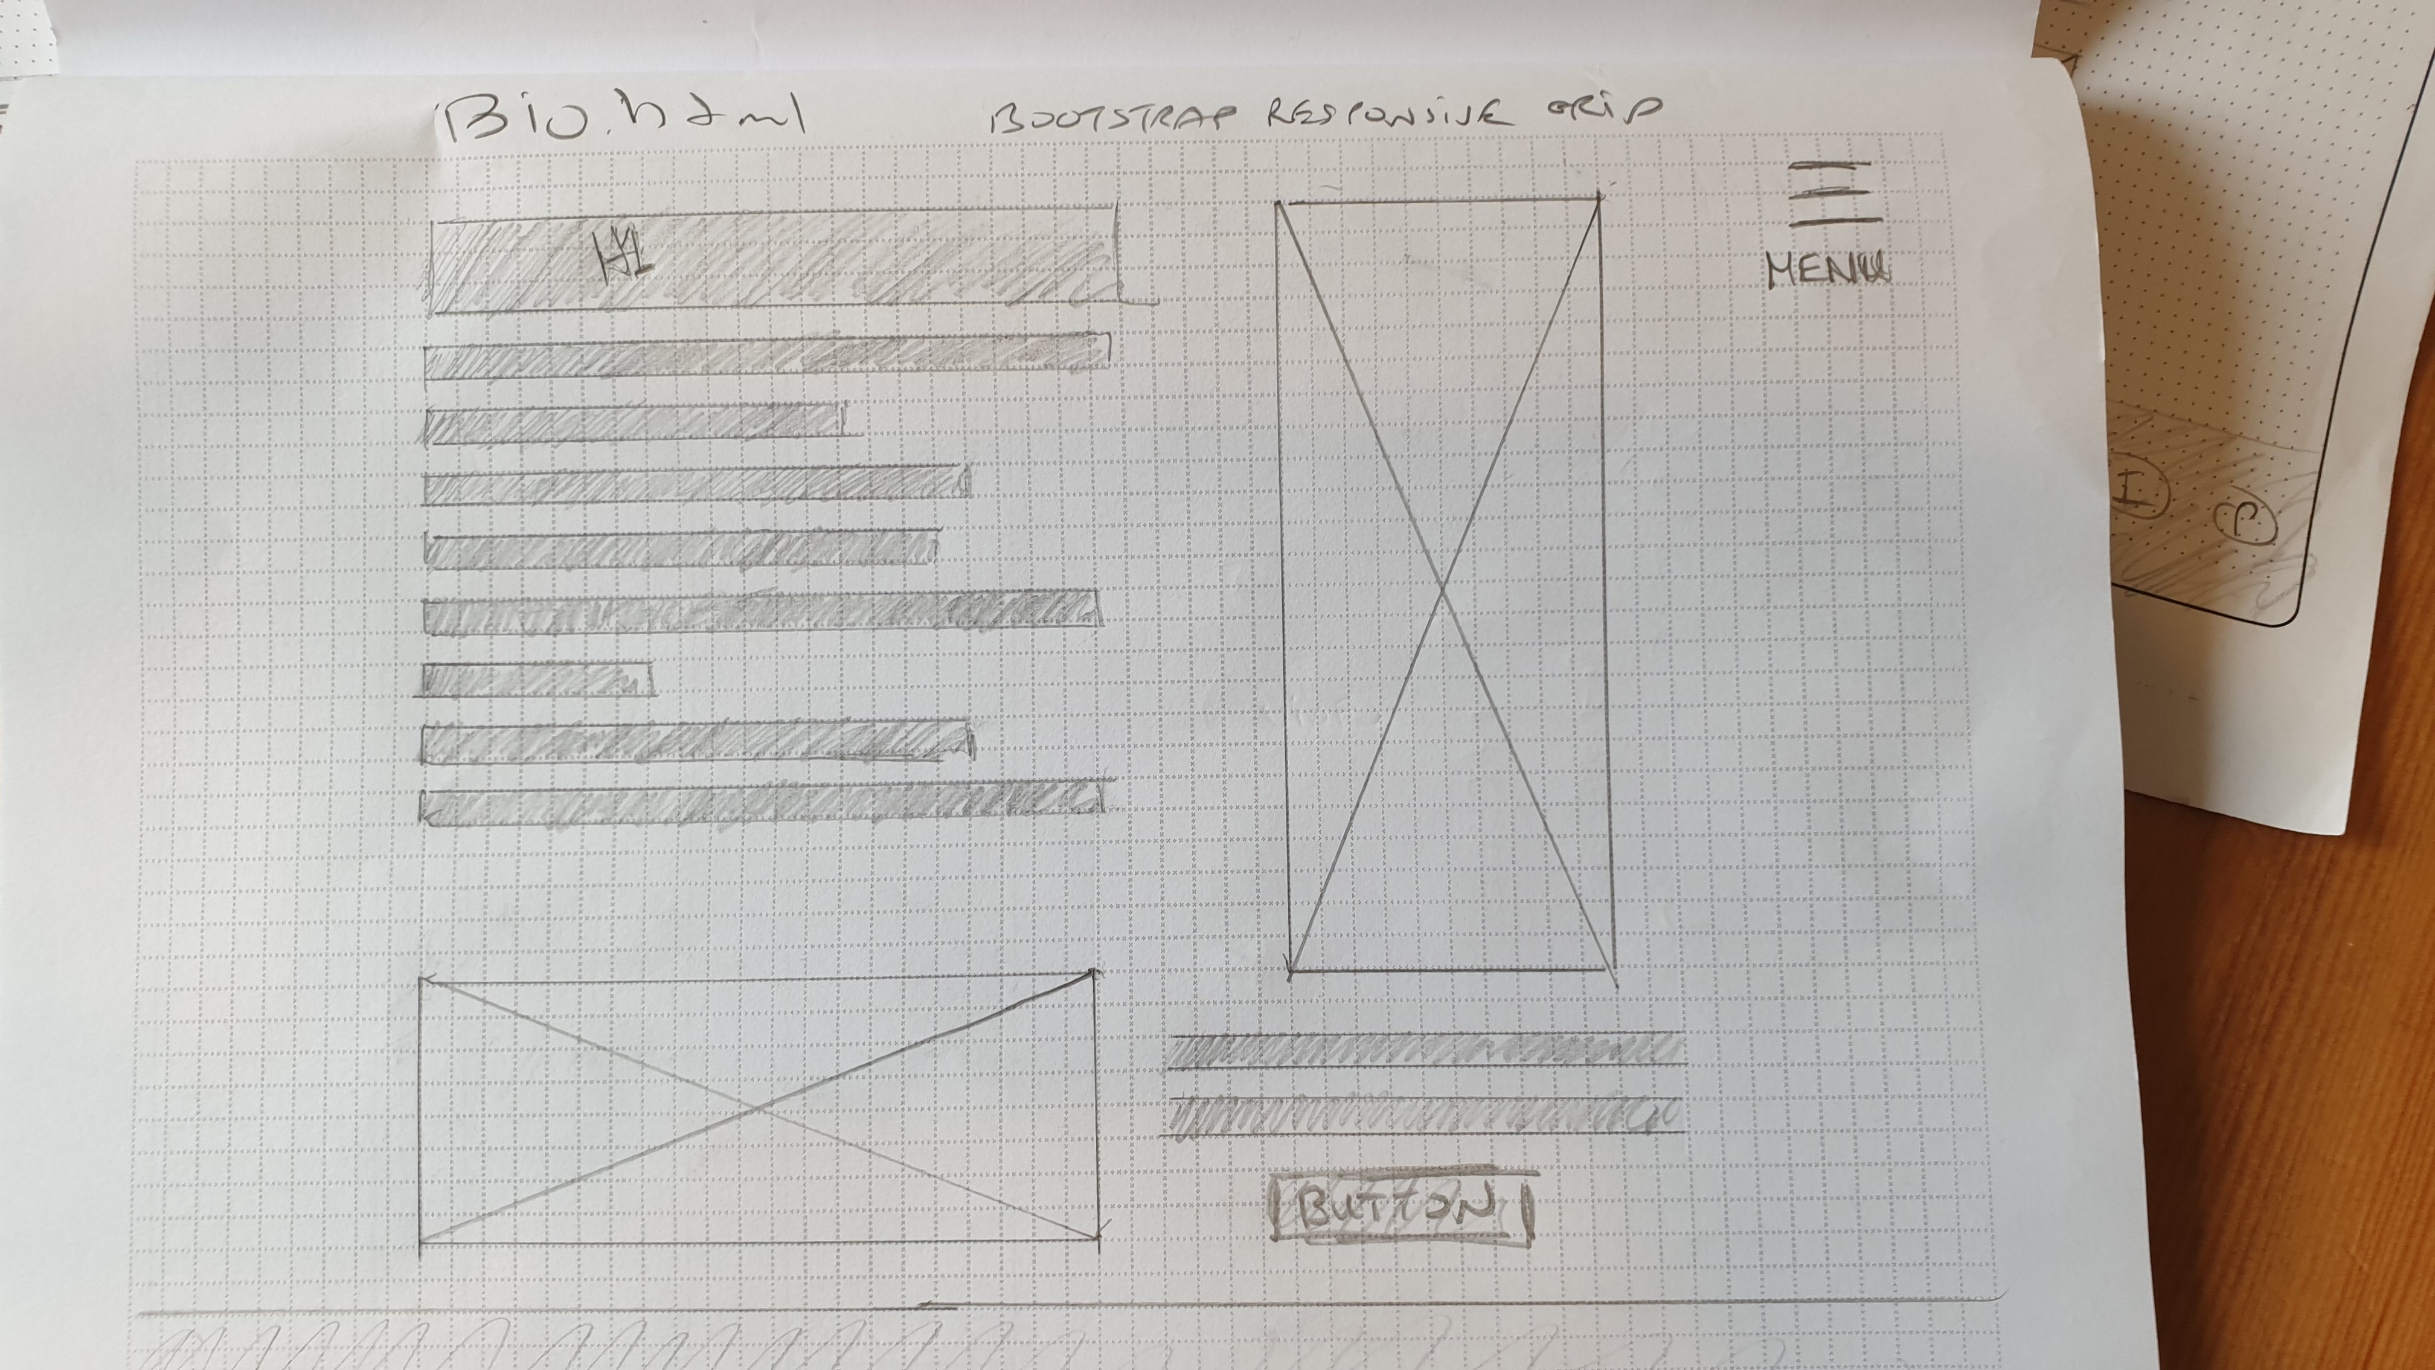 Bio.html
BOOTSTRAP RESPONSIVE GRID
MENU
H1
BUTTON
I